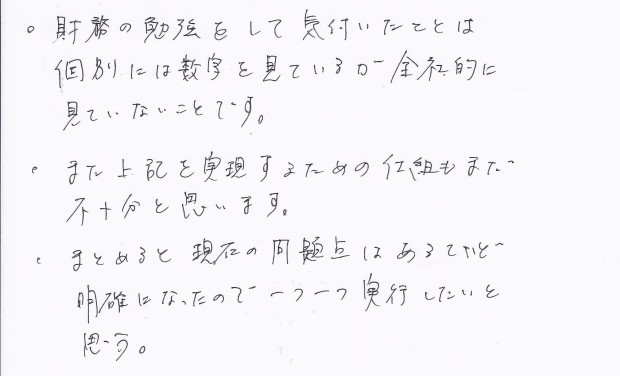 。財務の勉強をして気付いたことは
個別には数字を見ているが全社的に
見ていないことです。
・また上記を実現するための仕組もまだ
不十分と思います。
・まとめると現在の問題点はあるていど
明確になったので一つ一つ実行したいと
思う。